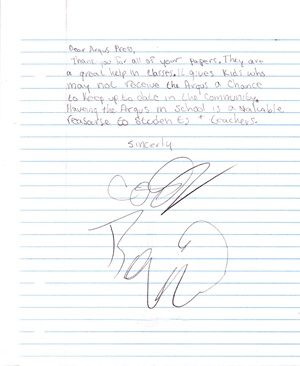 Dear Argus Press,
Thank you for all of your papers. They are
a great help in classes. It gives kids who
may not receive the Argus a chance
to keep up to date in the community.
Haveing the Argus in School is a valuable
reasourse to Students + teachers.
Sincerly